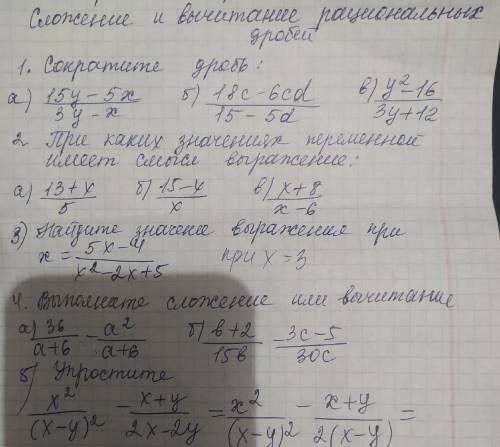 Сложение и вычитание рациональных
дробей
1. Сократите дробь:
а) (15y - 5x)/(3y - x) б) (18c - 6cd)/(15 - 5d) в) (y² - 16)/(3y + 12)
2. При каких значениях переменной
имеет смысл выражение:
а) (13 + x)/5 б) (15 - 4)/x в) (x + 8)/(x - 6)
3) Найдите значение выражения при
x = (5x - 4)/(x² - 2x + 5) при x = 3
4. Выполните сложение или вычитание
а) 36/(a + 6) - a²/(a + 6) б) (b + 2)/15b - (3c - 5)/30c
5) Упростите
x²/(x - y)² - (x + y)/(2x - 2y) = x²/(x - y)² - (x + y)/(2(x - y)) =